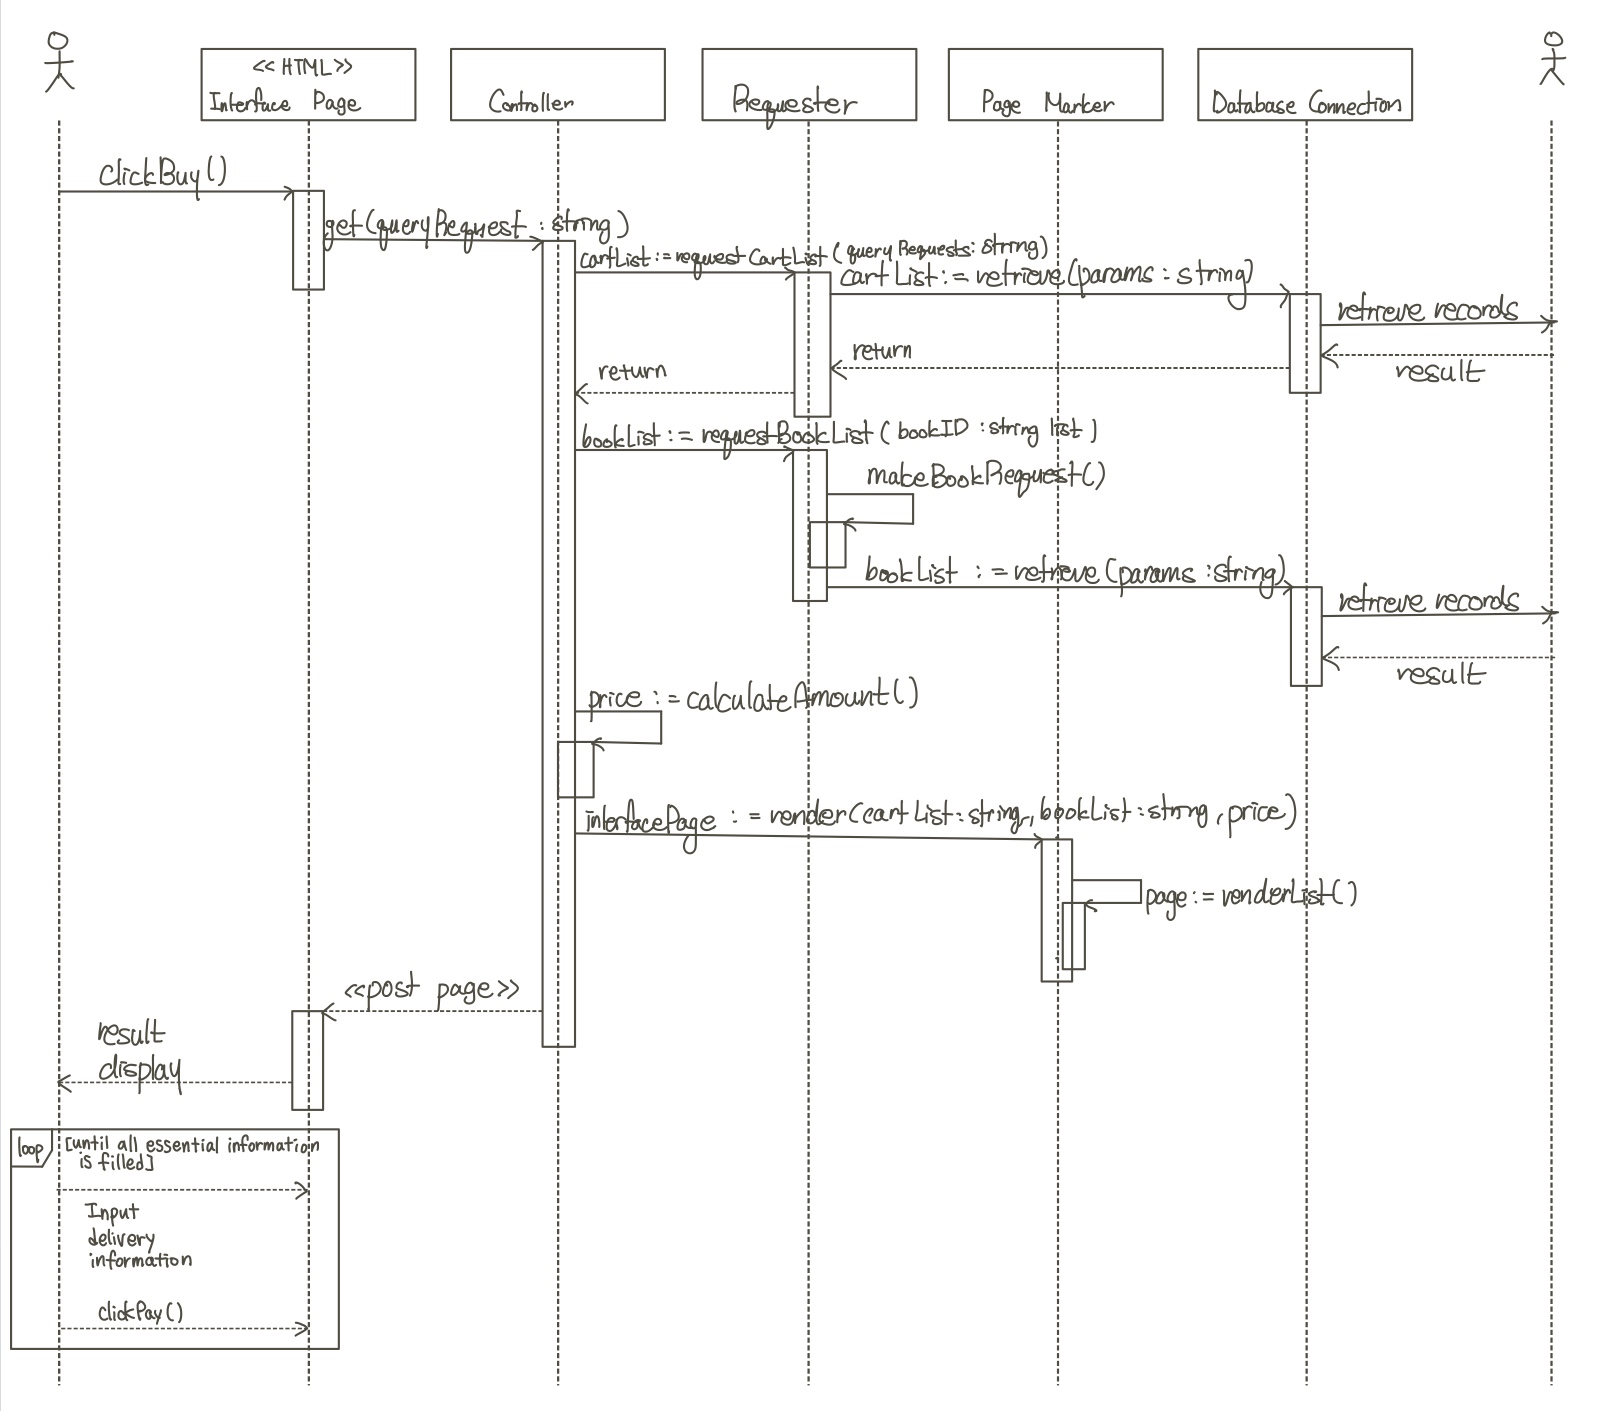 << HTML >>
Interface Page
Controller
Requester
Page Marker
Database Connection
clickBuy()
get(queryRequest : string)
cartList := requestCartList(queryRequests: string)
cartList := retrieve(params : string)
retrieve records
return
result
return
bookList := requestBookList( bookID : string list )
makeBookRequest()
bookList := retrieve(params : string)
retrieve records
result
price := calculateAmount()
interfacePage := render(cartList : string, bookList : string, price)
page := renderList()
<<post page>>
result
display
loop
[until all essential information
is filled]
Input
delivery
information
clickPay()